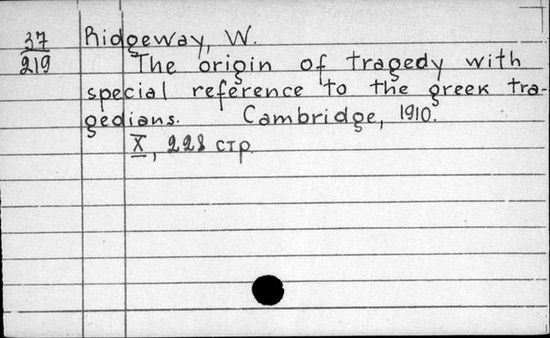 37 Ridgeway, W.
219 The origin of tragedy with
special reference to the greek tra-
gedians. Cambridge, 1910.
X, 228 стр.